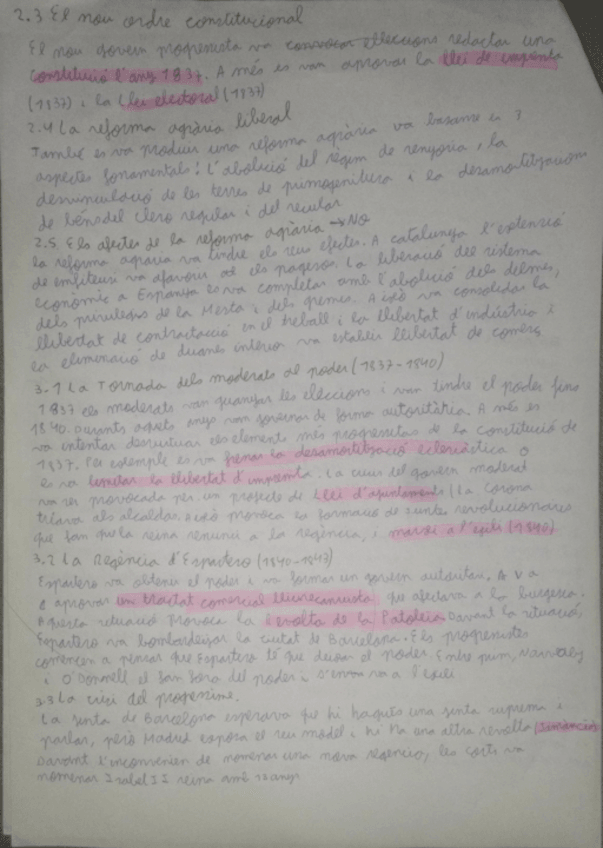 2.3 El nou ordre constitucional
El nou govern progresista va convocar elleccions redactar una
constitució l'any 1837. A més es van aprovar la llei de imprenta
(1837) i la llei electoral (1837)
2.4 La reforma agrària liberal
També es va produir una reforma agrària va basarse en 3
aspectes fonamentals: l'abolició del règim de senyoria, la
desvinculació de les terres de primogenitura i la desamortitzacions
de béns del clero regular i del secular
2.5. Els afectes de la reforma agrària → NO
la reforma agraria va tindre els seus efectes. A catalunya l'extenció
de emfiteusi va afavorir als pagesos. La liberació del sistema
econòmic a Espanya es va completar amb l'abolició dels delmes,
dels privilegis de la Mesta i dels gremis. Això va consolidar la
llibertat de contractacció en el treball i la llibertat d'indústria i
la eliminació de duanes interior va establir llibertat de comerç
3.1 La Tornada dels moderats al poder (1837-1840)
1837 els moderats van guanyar les eleccions i van tindre el poder fins
1840. Durants aquets anys van governar de forma autoritària. A més es
va intentar desvirtuar els elements més progresistas de la constitució de
1837. Per exemple es va frenar la desamortització eclesiàstica o
es va limitar la llibertat d'impremta. La crisis del govern moderat
va ser provocada per un projecte de Llei d'ajuntaments (La Corona
triava als alcaldes. Això provoca la formació de juntes revolucionaries
que fan que la reina renunci a la regència, i marxi a l'exili (1840)
3.2 La Regència d'Espartero (1840-1843)
Espartero va obtenir el poder i va formar un govern autoritari. A V A
a aprovar un tractat comercial lliurecanvista que afectava a la burgesia.
Aquesta situació provoca la Revolta de la Patuleia Davant la situació,
Espartero va bombardejar la ciutat de Barcelona. Els progresistes
comencen a pensar que Espartero té que deixar el poder. Entre prim, Narváez
i O'Donnell el fan fora del poder i s'envan va a l'exili
3.3 La crisi del progresisme.
La junta de Barcelona esperava que hi hagués una junta suprema i
parlar, però Madrid exposa el seu model i hi ha una altra revolta (Jamància
Davant l'inconvenien de nomenar una nova regencia, les corts va
nomenar Isabel II reina amb 13 anys